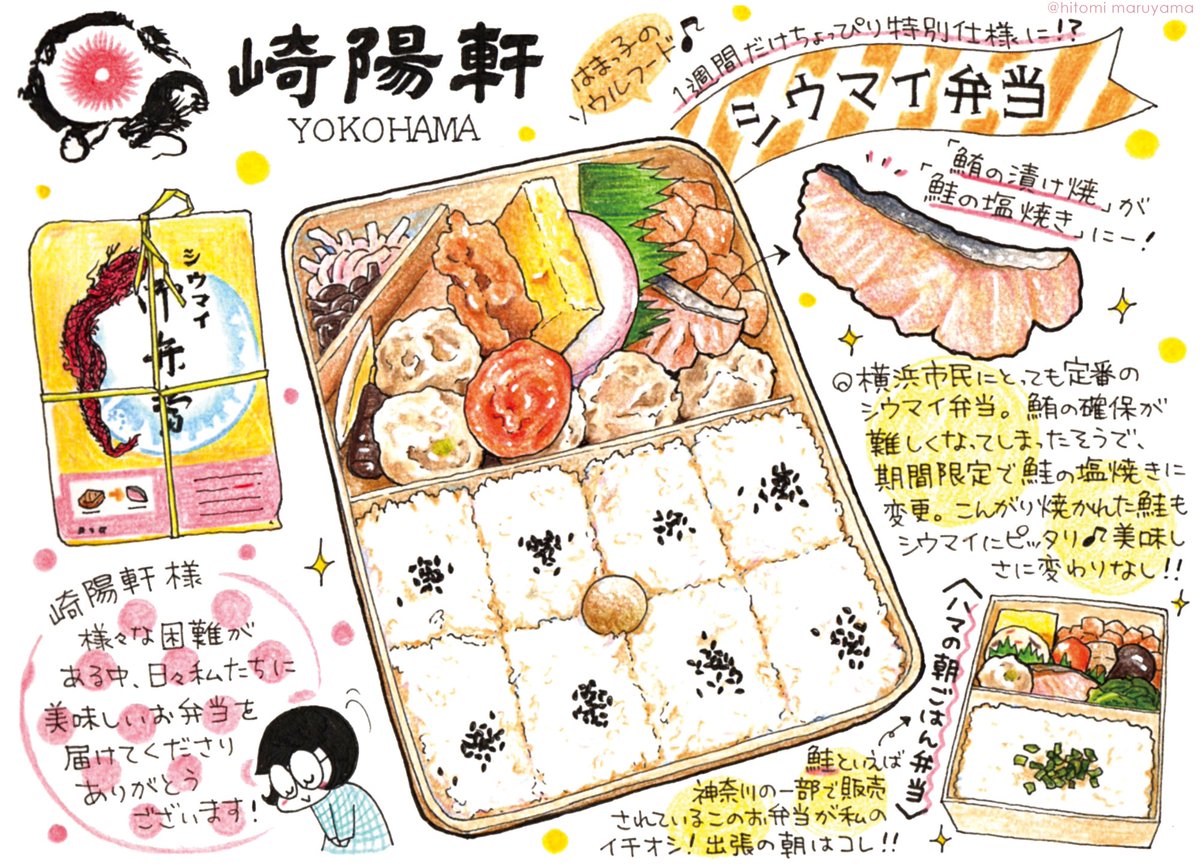 @hitomi maruyama
崎陽軒
YOKOHAMA
はまっ子の
ソウルフード♪
1週間だけちょっぴり特別仕様に!?
シウマイ弁当
「鮪の漬け焼」が
「鮭の塩焼き」にー!
シウマイ
御弁当
◎横浜市民にとっても定番の
シウマイ弁当。鮪の確保が
難しくなってしまったそうで、
期間限定で鮭の塩焼きに
変更。こんがり焼かれた鮭も
シウマイにピッタリ♪美味し
さに変わりなし!!
崎陽軒様
様々な困難が
ある中、日々私たちに
美味しいお弁当を
届けてくださり
ありがとう
ございます!
〈ハマの朝ごはん弁当〉
鮭といえば
神奈川の一部で販売
されているこのお弁当が私の
イチオシ!出張の朝はコレ!!